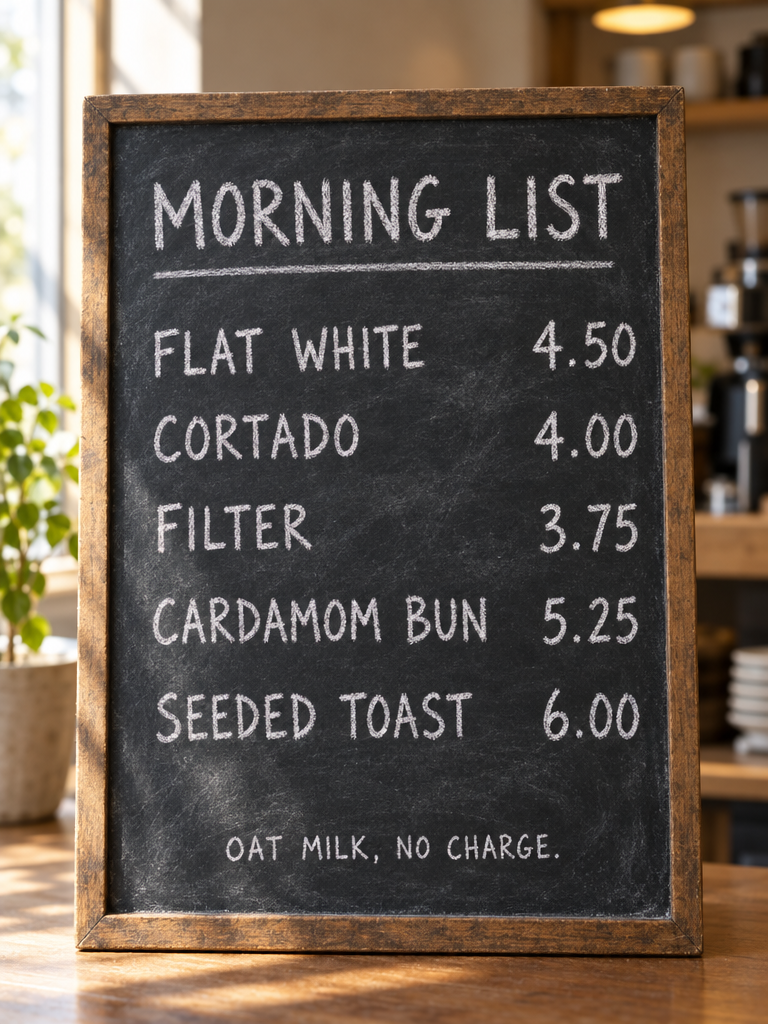 MORNING LIST
FLAT WHITE 4.50
CORTADO 4.00
FILTER 3.75
CARDAMOM BUN 5.25
SEEDED TOAST 6.00
OAT MILK, NO CHARGE.